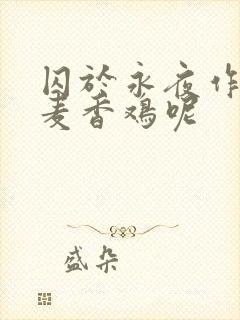 囚於永夜作
麦香鸡呢
盛朵